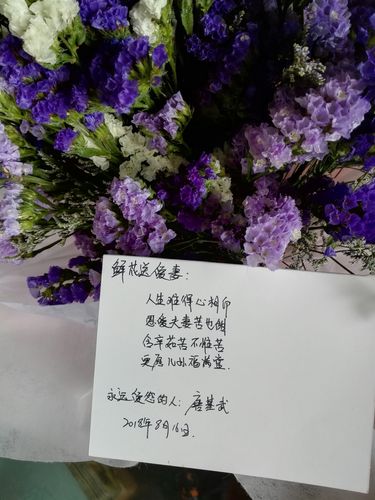 鲜花送爱妻:
人生难得心相印
恩爱夫妻苦也甜
含辛茹苦不惟苦
更愿儿孙福满堂.
永远爱您的人: 唐基武
2018年8月16日.